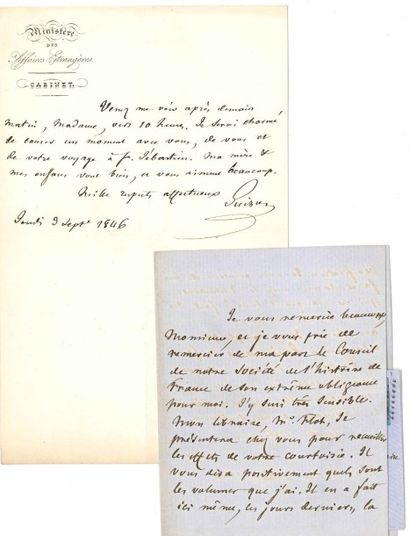 Ministère
DES
Affaires Etrangères.
CABINET.
Venez me voir après demain
matin, Madame, vers 10 heures. Je serai charmé
de causer un moment avec vous, de vous et
de votre voyage à St Sébastien. Ma mère et
mes enfans vont bien, et vous aiment beaucoup.
Mille respects affectueux
Guizot
Jeudi 3 Septe 1846
Je vous remercie beaucoup,
Monsieur, et je vous prie de
remercier de ma part le Conseil
de notre Société de l'histoire de
France de son extrême obligeance
pour moi. J'y suis très sensible.
Mon libraire, Mr
se
présentera chez vous pour recueillir
les effets de votre courtoisie. Il
vous dira positivement quels sont
les volumes que j'ai. Il en a fait
ici même, les jours derniers, la